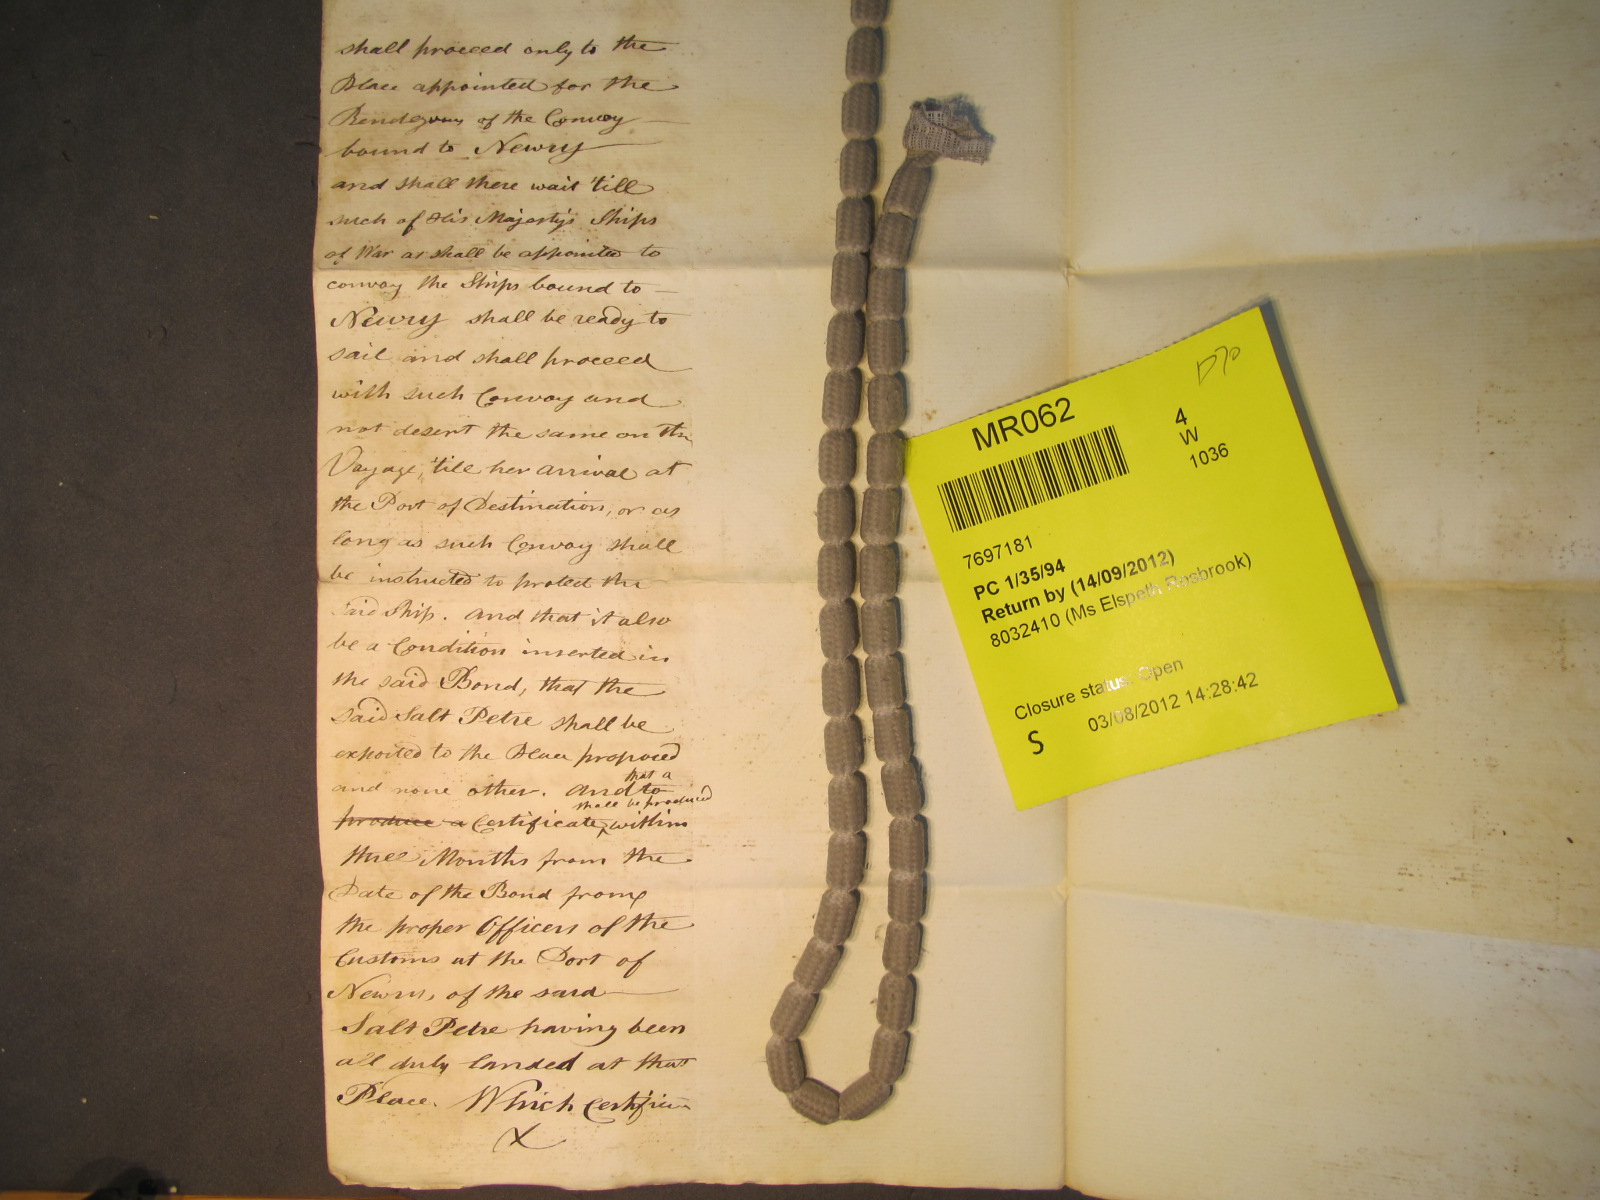 shall proceed only to the
Place appointed for the
Rendezvous of the Convoy
bound to Newry
and shall there wait 'till
such of His Majesty's Ships
of War as shall be appointed to
convoy the Ships bound to
Newry shall be ready to
sail and shall proceed
with such Convoy and
not desert the same on the
Voyage, 'till her arrival at
the Port of Destination, or as
long as such Convoy shall
be instructed to protect the
said Ship. And that it also
be a Condition inserted in
the said Bond, that the
said Salt Petre shall be
exported to the Place proposed
and none other. And to
that a
produce a Certificate, within
shall be produced
three Months from the
Date of the Bond from
the proper Officers of the
Customs at the Port of
Newry, of the said
Salt Petre having been
all duly landed at that
Place. Which Certificate
X
MR062
4
W
1036
7697181
PC 1/35/94
Return by (14/09/2012)
8032410 (Ms Elspeth Rosbrook)
Closure status: Open
03/08/2012 14:28:42
S